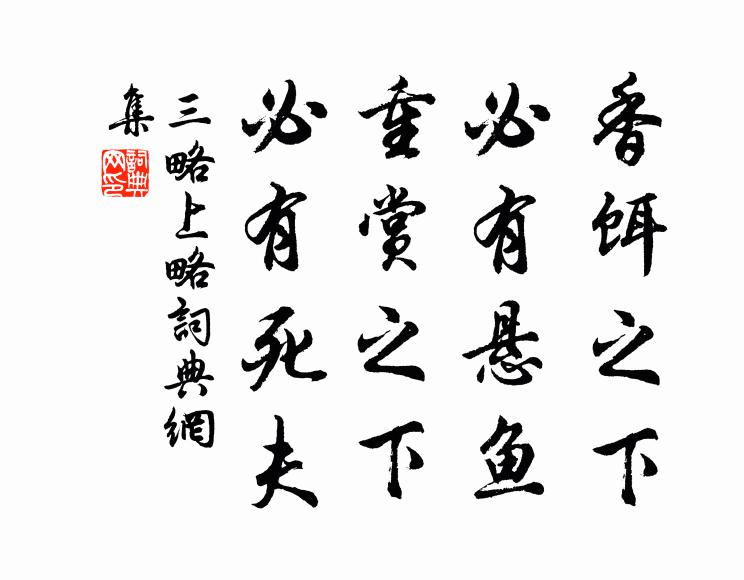 香饵之下
必有悬鱼
重赏之下
必有死夫
三略上略詞典網
集
詞典
网印